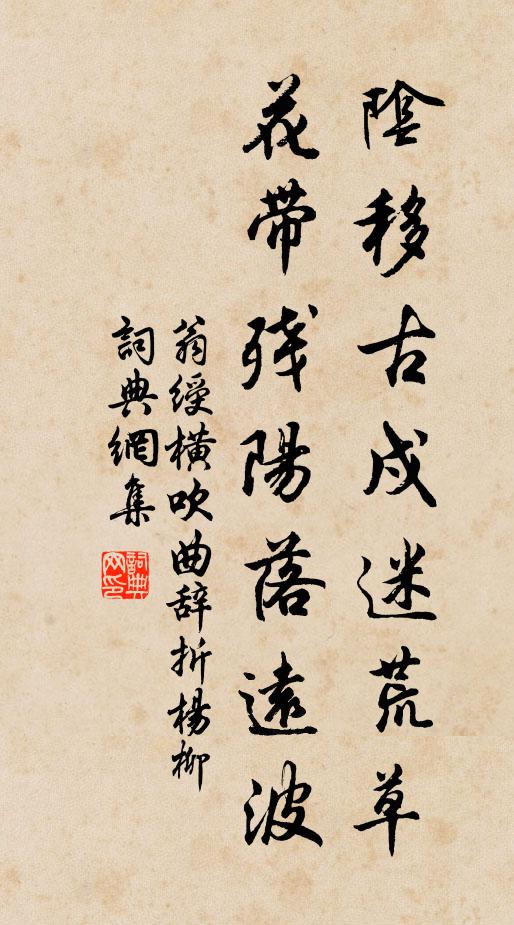 陰移古戍迷荒草
花帶残陽落遠波
翁綬橫吹曲辞折楊柳
詞典網集
詞典网印